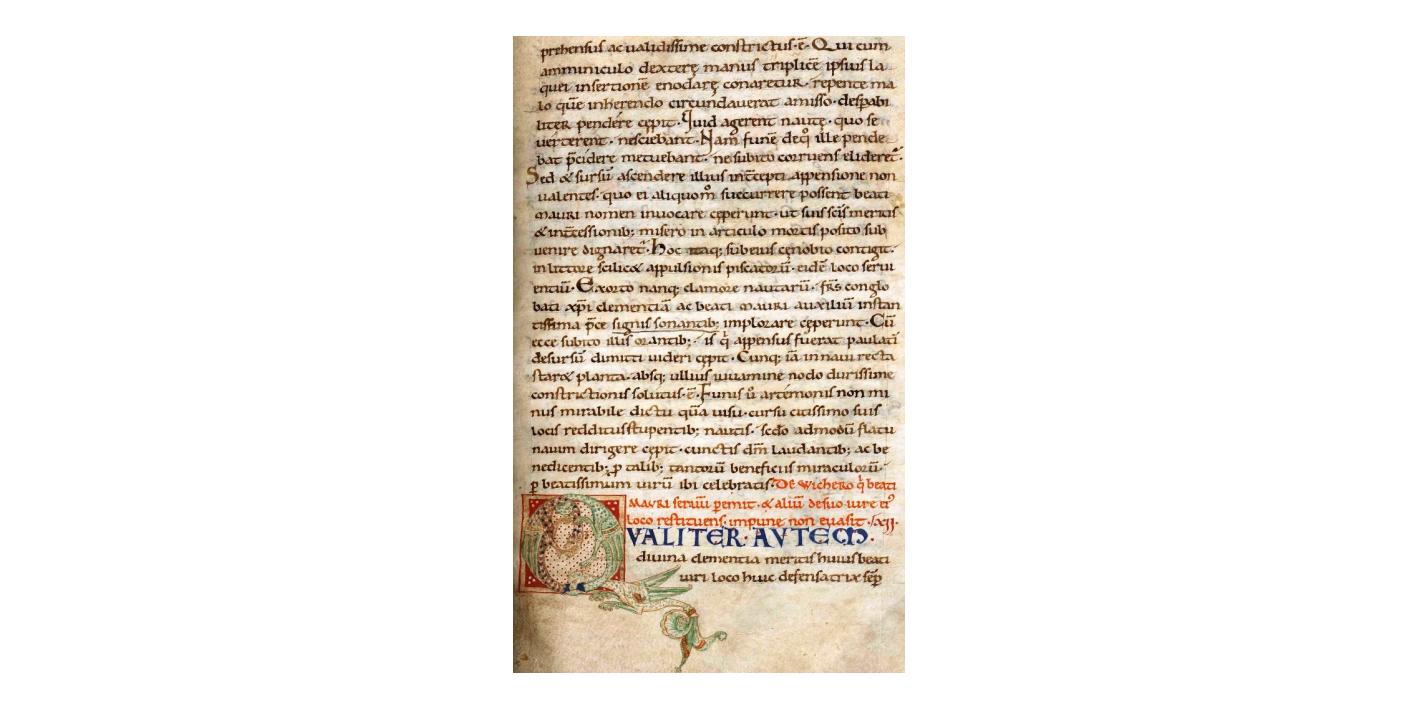 prehensus ac ualidissime constrictus·ē· Qui cum
amminiculo dexterę manus triplicē ipsius la
quei insertionē enodarę conaretur· repente ma
lo quē inherendo circundauerat amisso· despabi
liter pendére cępit· Quid agerent nautę· quo se
uerterent· nesciebant· Nam funē de q̊ ille pende
bat p̄cidere metuebant· ne subito corruens elideret̃·
Sed & sursū ascendere illius int̄cepti appensione non
ualentes· quo ei aliquom̊ succurrere possent beati
mauri nomen inuocare cęperunt· ut suis sc̄is meritis
& int̄cessionib; misero in articulo mortis posito sub
uenire dignaret̃· Hoc itaq; sub eius cęnobio contigit·
in littore scilic& appulsionis piscatorū· eidē loco serui
entiū· Exorto nanq; clamore nautarū· fr̄s conglo
bati xp̄i clementiā ac beati mauri auxiliū instan
tissima p̄ce signis sonantib; implorare cęperunt· Cū
ecce subito illis orantib; is q̇ appensus fuerat paulati
desursū dimitti uideri cępit· Cunq; iā in naui recta
star& planta· absq; ullius iuuamine nodo durissime
constrictionis solutus·ē· Funis ū artemonis non mi
nus mirabile dictu quā uisu· cursu citissimo suis
locis redditus stupentib; nautis· sc̄do admodū flatu
nauim dirigere cępit· cunctis dm̄ laudantib; ac be
nedicentib; ꝓ talib; tantorū beneficiis miraculorū·
ꝑ beatissimum uirū ibi celebratis· De Wichero q̇ beati
Mauri seruiū pemit· & aliū de suo iure eiꝰ
loco restituens· impune non euasit· xii·
QVALITER· AVTEM·
diuina clementia meritis huius beati
uiri loco huic defensatrix sēp